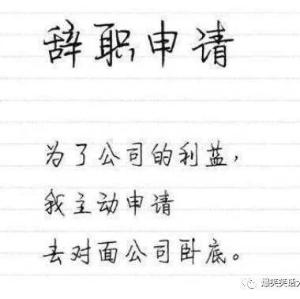 辞职申请
为了公司的利益,
我主动申请
去对面公司卧底。
爆笑笑话